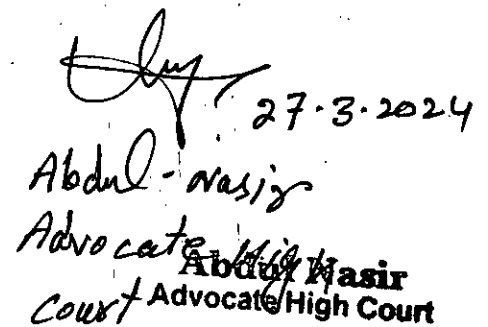 27.3.2024
Abdul-Nasir
Advocate High
Abdul Nasir
Court
Advocate High Court